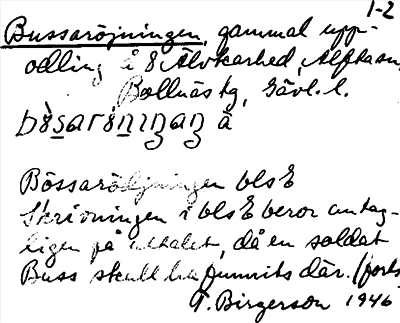 1-2
Bussaröjningen, gammal upp-
odling å 8 Älvkarhed, Alfta sn,
Bollnäs tg, Gävl. l.
å
Bössaröjningen bls E
Skrivningen i bls E beror antag-
ligen på uttalet, då en soldat
Buss skull ha funnits där. (forts
T. Birgerson 1946